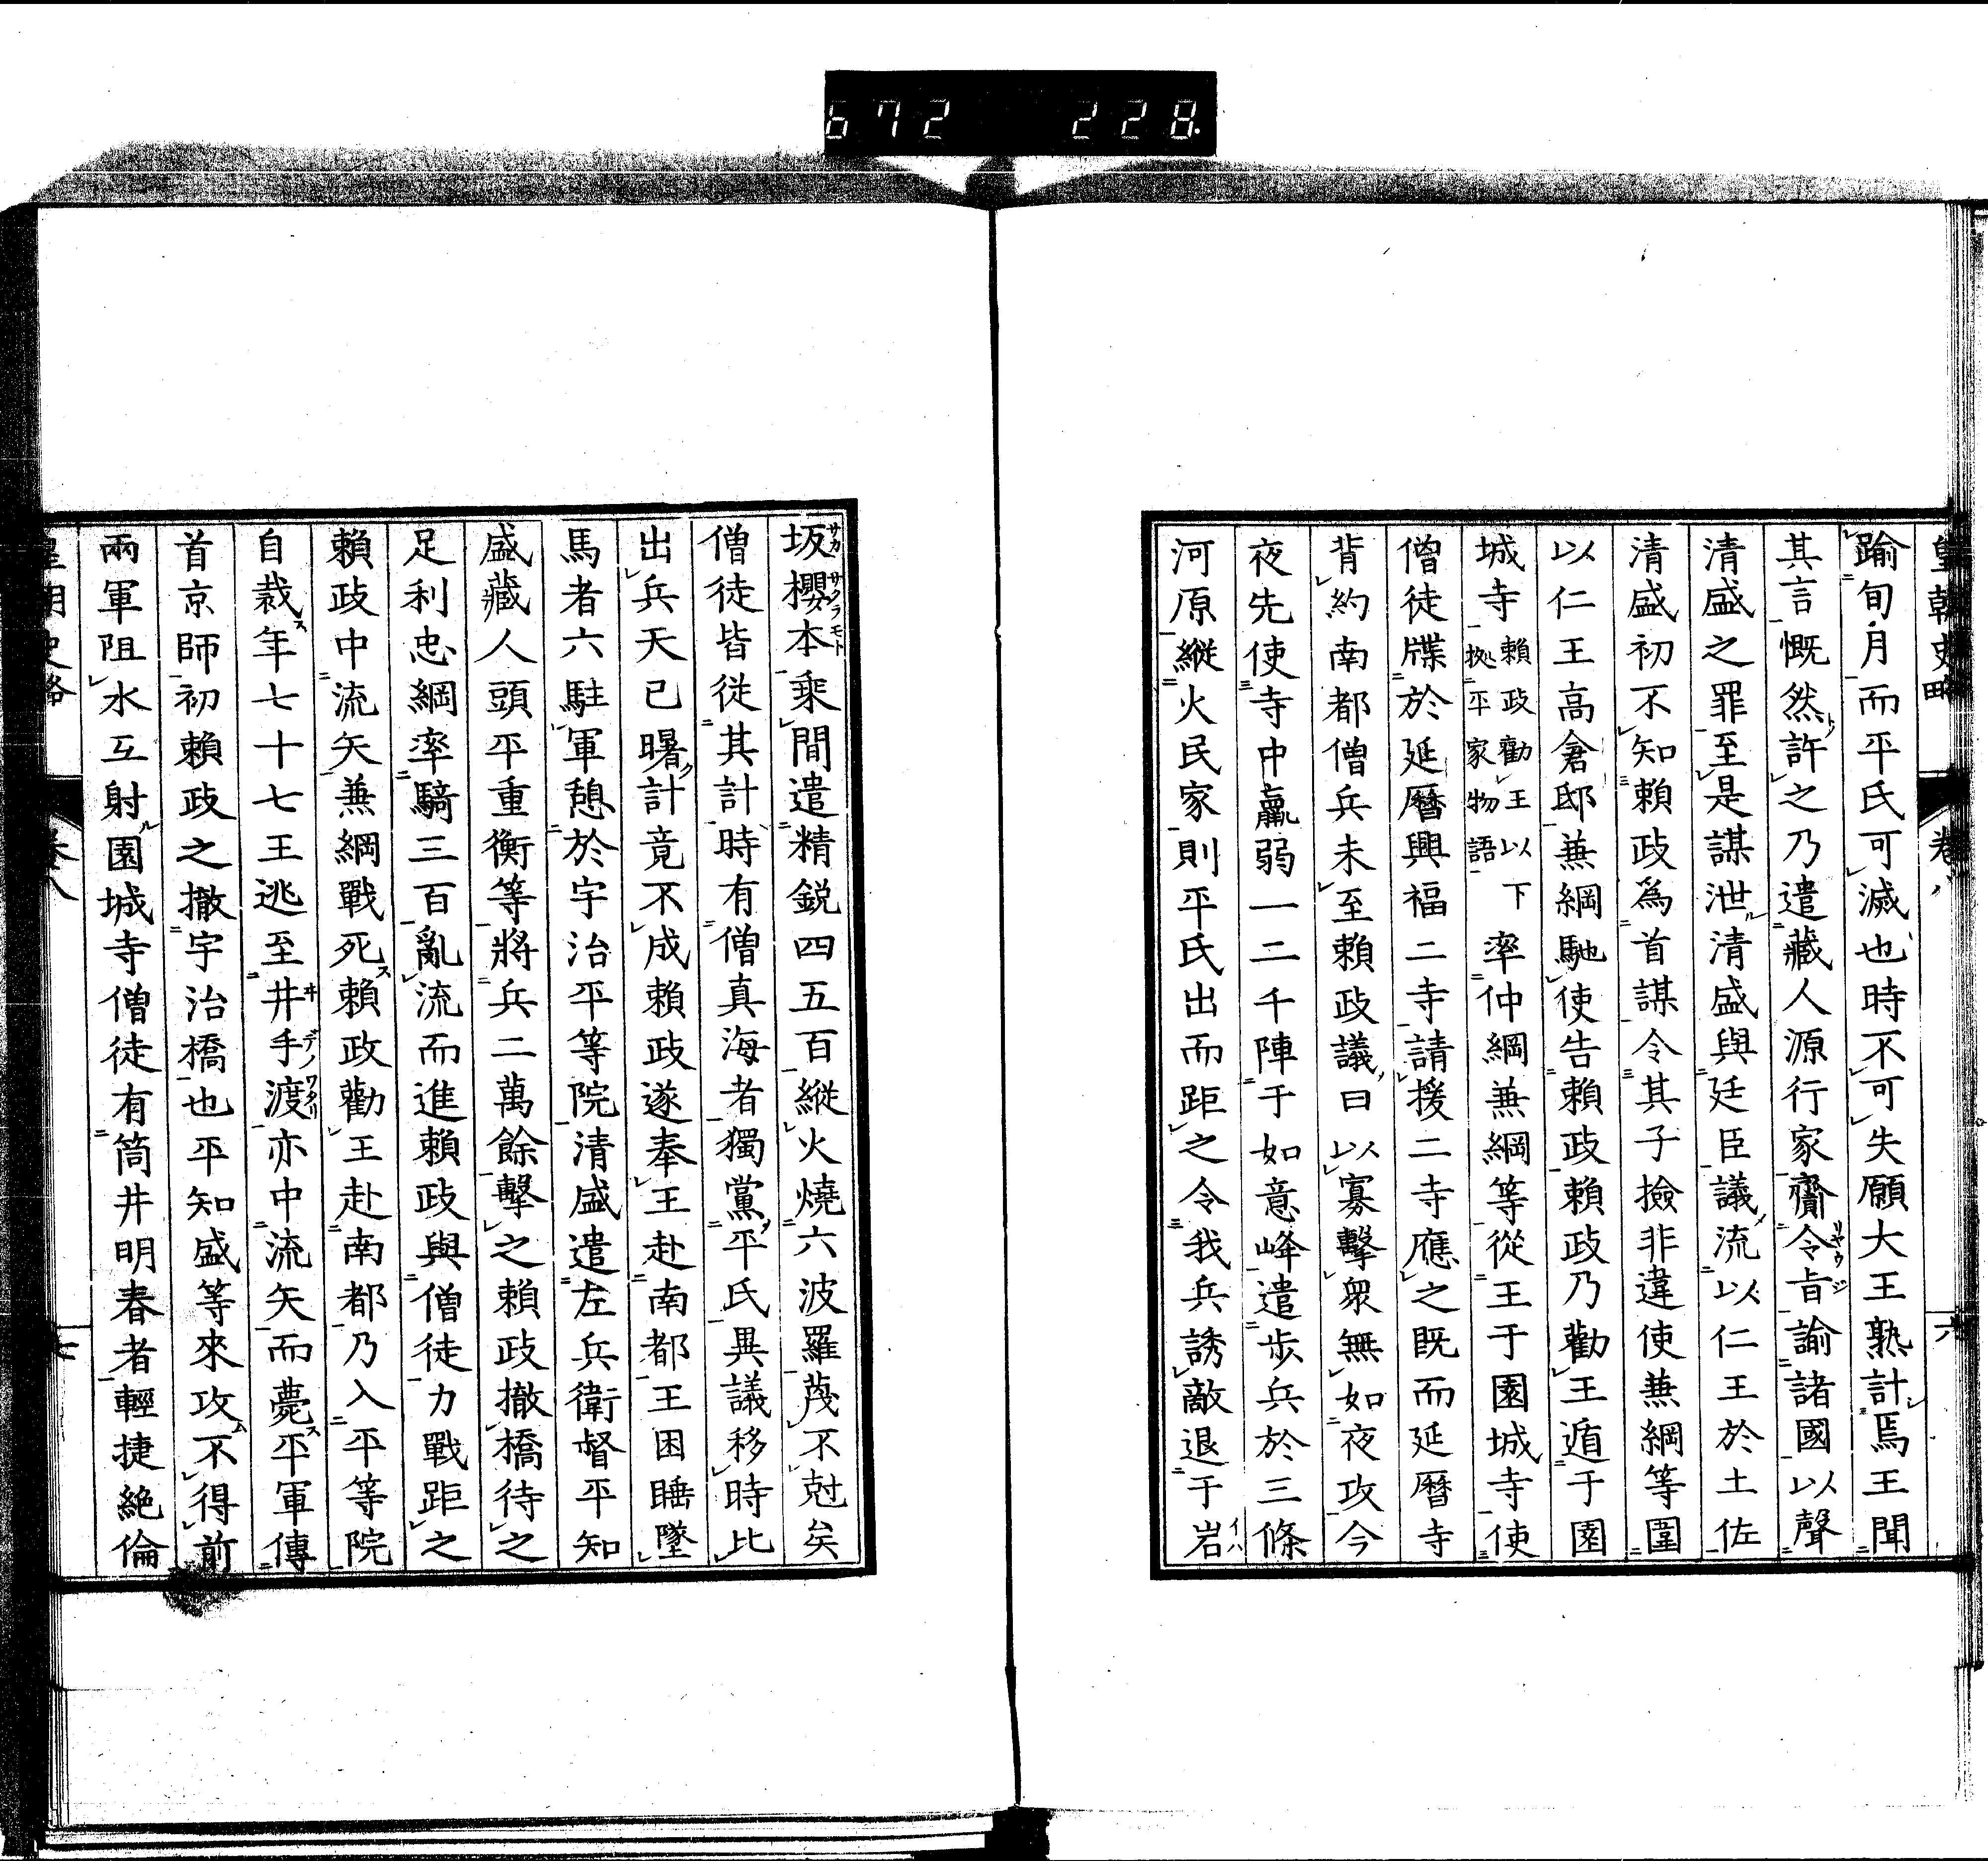 672 228
皇朝史略 卷八 六
踰旬月而平氏可滅也時不可失願大王熟計焉王聞
其言慨然許之乃遣藏人源行家齎令旨諭諸國以聲
清盛之罪至是謀泄清盛與廷臣議流以仁王於土佐
清盛初不知賴政爲首謀令其子撿非違使兼綱等圍
以仁王高倉邸兼綱馳使告賴政賴政乃勸王遁于園
城寺賴政勸王以下拠平家物語率仲綱兼綱等從王于園城寺使
僧徒牒於延曆興福二寺請援二寺應之既而延曆寺
背約南都僧兵未至賴政議曰以寡擊衆無如夜攻今
夜先使寺中羸弱一二千陣于如意峰遣步兵於三條
河原縱火民家則平氏出而距之令我兵誘敵退于岩
坂櫻本乘間遣精銳四五百縱火燒六波羅蔑不尅矣
僧徒皆從其計時有僧真海者獨黨平氏異議移時比
出兵天已曙計竟不成賴政遂奉王赴南都王困睡墜
馬者六駐軍憩於宇治平等院清盛遣左兵衛督平知
盛藏人頭平重衡等將兵二萬餘擊之賴政撤橋待之
足利忠綱率騎三百亂流而進賴政與僧徒力戰距之
賴政中流矢兼綱戰死賴政勸王赴南都乃入平等院
自裁年七十七王逃至井手渡亦中流矢而薨平軍傳
首京師初賴政之撤宇治橋也平知盛等來攻不得前
兩軍阻水互射園城寺僧徒有筒井明春者輕捷絕倫
皇朝史略 卷八 七